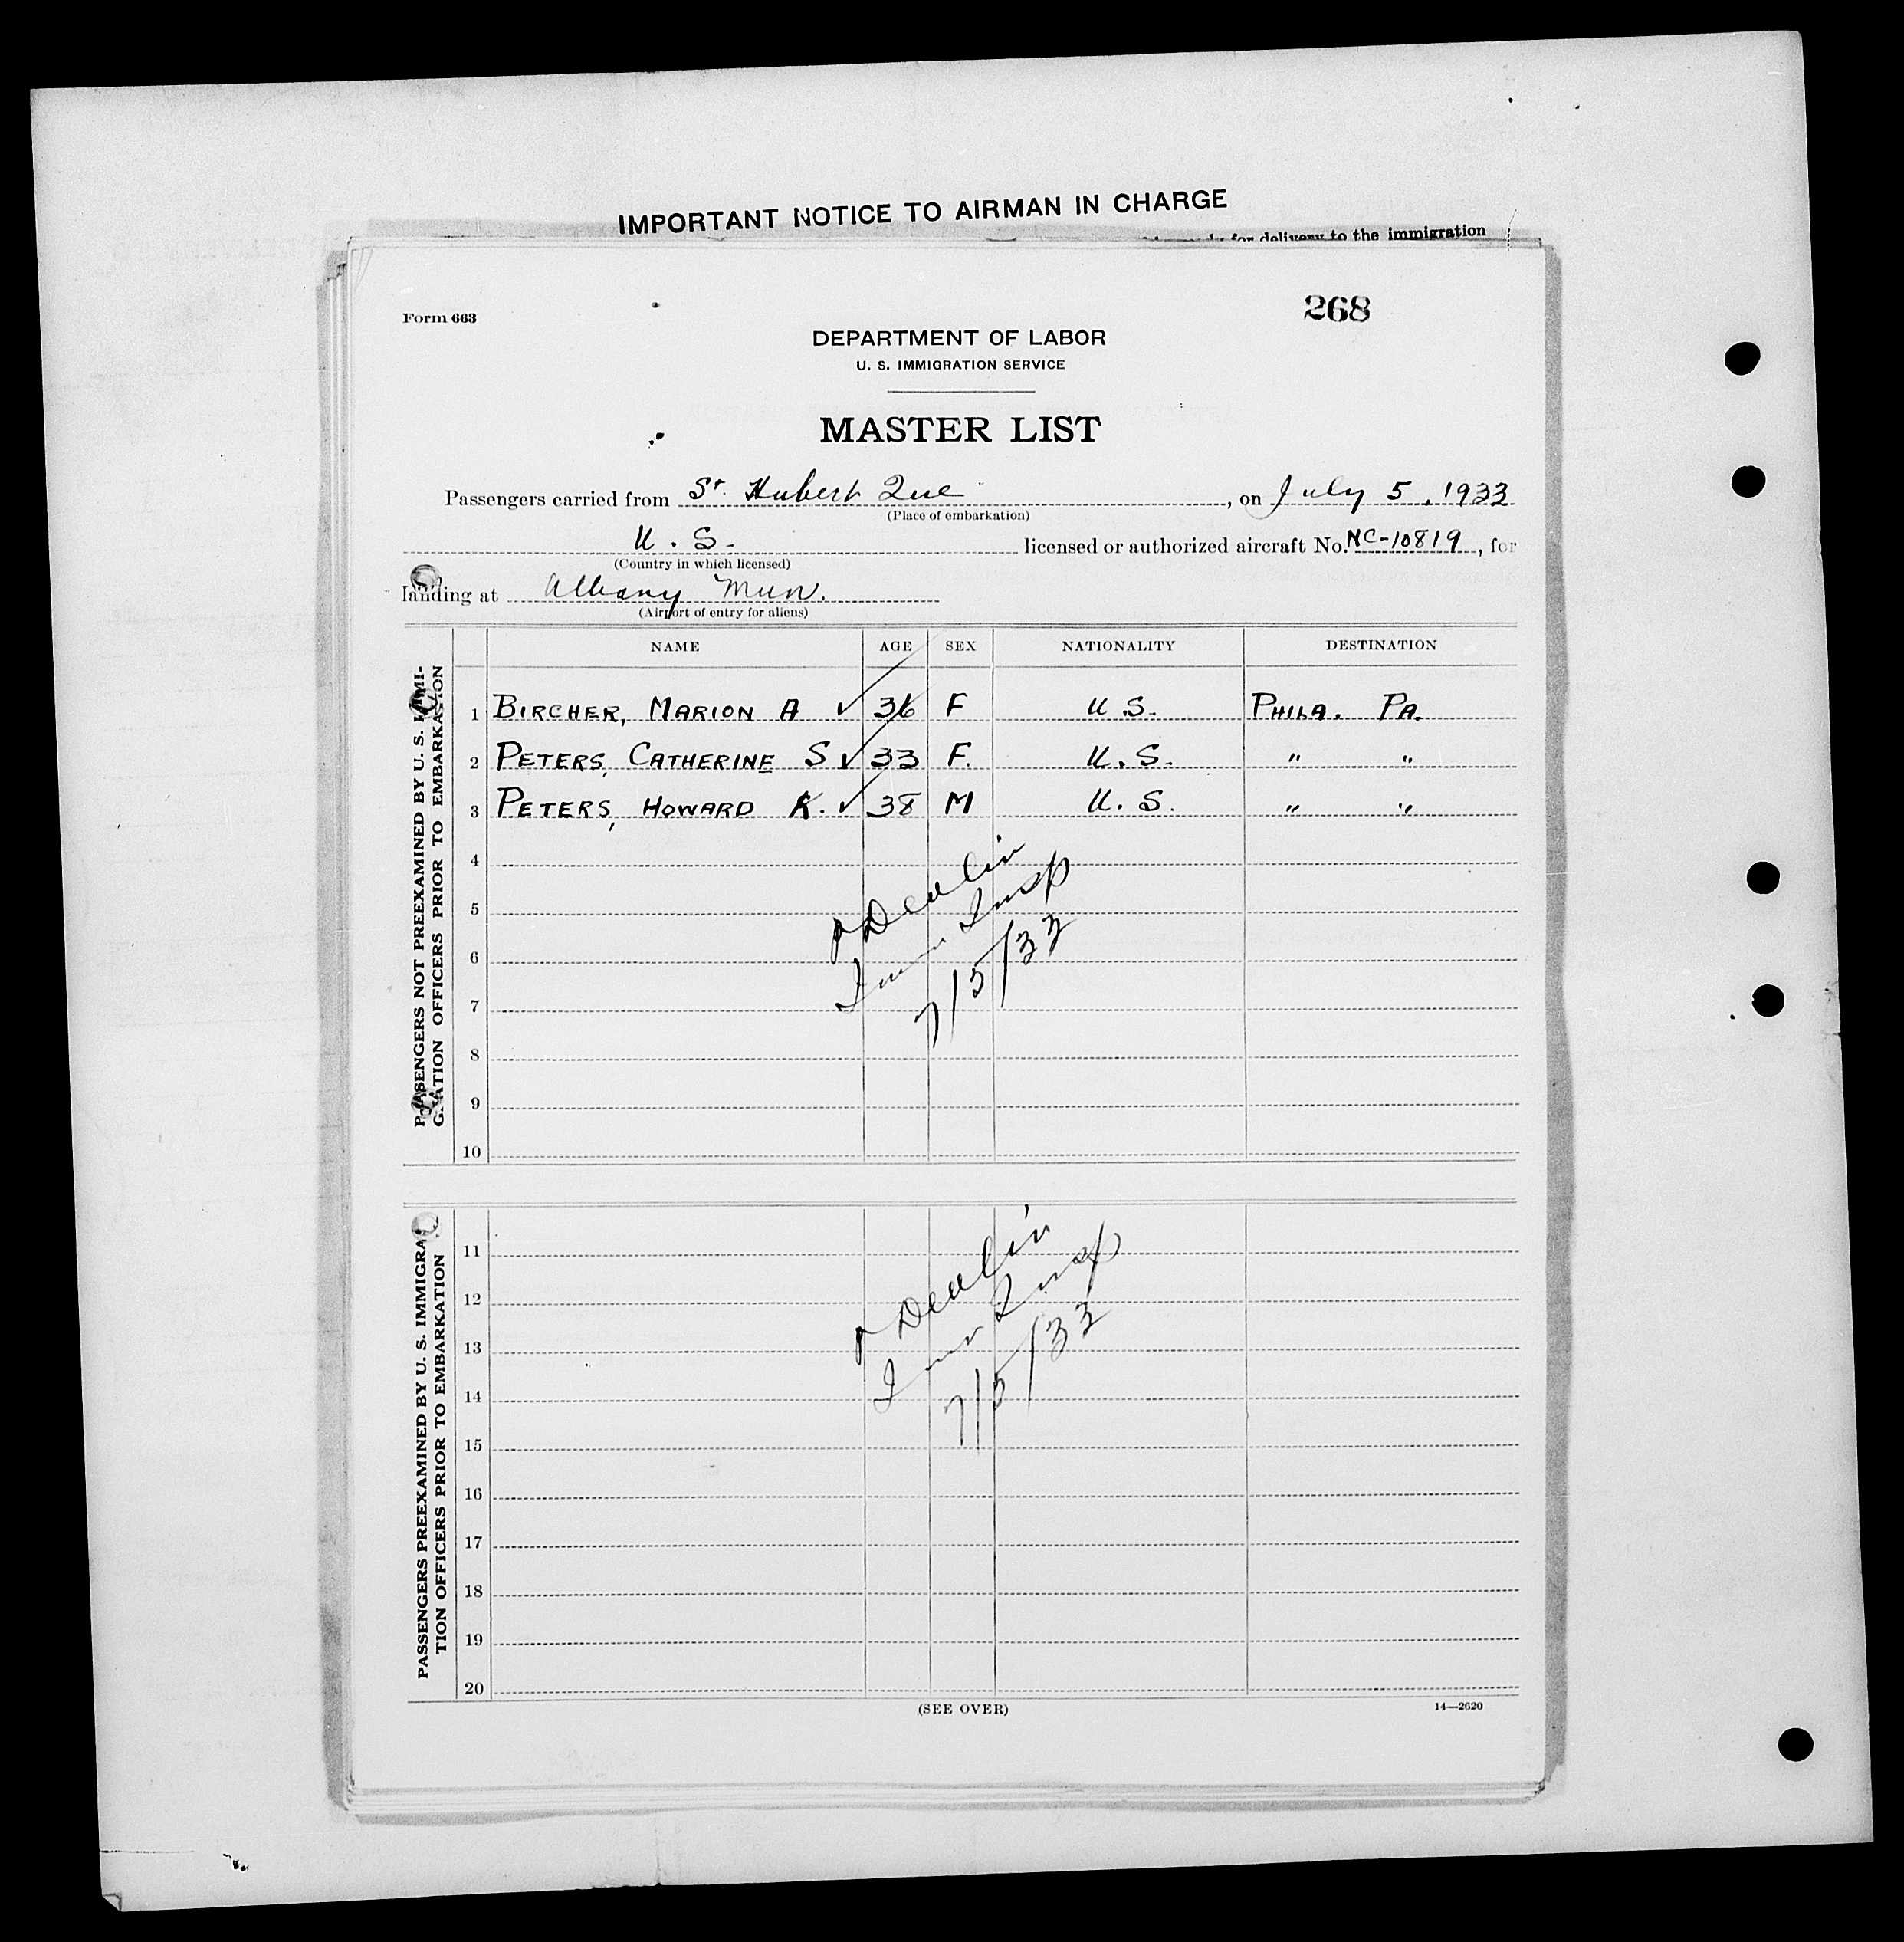 IMPORTANT NOTICE TO AIRMAN IN CHARGE
for delivery to the immigration
Form 663
268
DEPARTMENT OF LABOR
U. S. IMMIGRATION SERVICE
MASTER LIST
Passengers carried from St. Hubert Que , on July 5, 1933
(Place of embarkation)
U. S. licensed or authorized aircraft No. NC-10819, for
(Country in which licensed)
landing at Albany Mun.
(Airport of entry for aliens)
NAME AGE SEX NATIONALITY DESTINATION
PASSENGERS NOT PREEXAMINED BY U. S. IMMI-
GRATION OFFICERS PRIOR TO EMBARKATION
1 BIRCHER, MARION A ✓ 36 F U S. PHILA. PA.
2 PETERS, CATHERINE S ✓ 33 F. U. S. " "
3 PETERS, HOWARD K. ✓ 38 M U. S. " "
4
5
6
7
8
9
10
Devlin
Imm Insp
7/5/33
PASSENGERS PREEXAMINED BY U. S. IMMIGRA-
TION OFFICERS PRIOR TO EMBARKATION
11
12
13
14
15
16
17
18
19
20
Devlin
Imm Insp
7/5/33
(SEE OVER)
14—2620